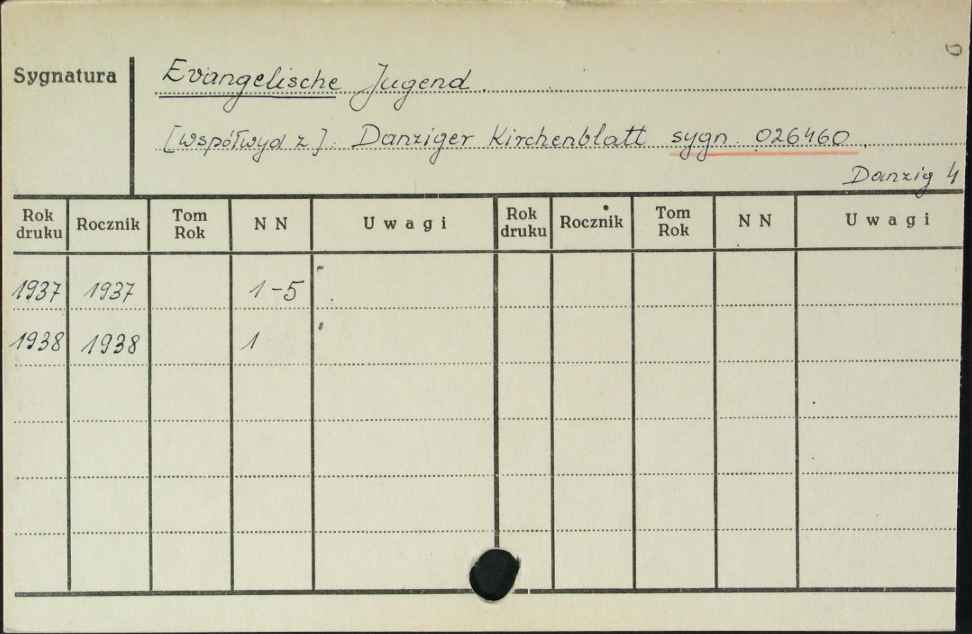 Sygnatura
Evangelische Jugend.
[współwyd z]. Danziger Kirchenblatt sygn. 026460.
Danzig 4
Rok druku Rocznik Tom Rok NN Uwagi Rok druku Rocznik Tom Rok NN Uwagi
1937 1937 1-5
1938 1938 1